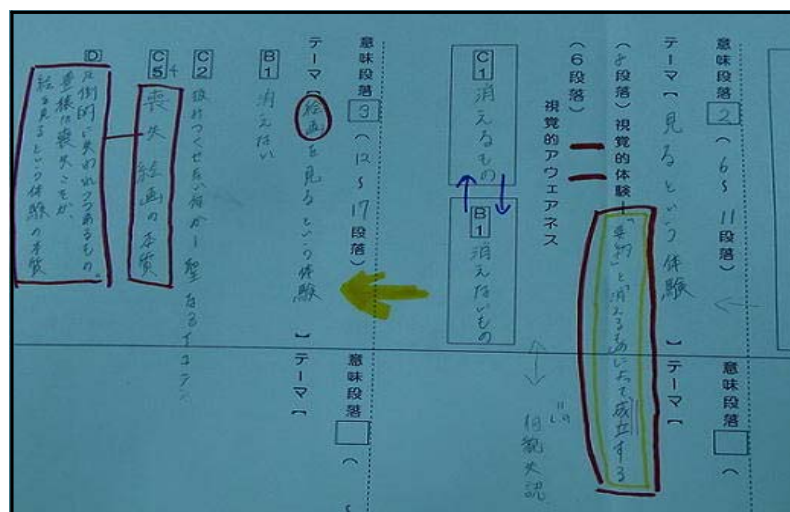 意味段落 2 (6〜11段落)
テーマ【見るという体験】
(8段落) 視覚的体験ー「要約」と「消える」ものによって成立する
(6段落)
視覚的アウェアネス
C1 消えるもの
B1 消えないもの
相貌失認
意味段落 3 (12〜17段落)
テーマ【絵画を見るという体験】
B1 消えない
C2
聖なるイコン
C5 4 喪失 絵画の本質
D 圧倒的に失われつつあるもの。
喪失こそが、
絵を見るという体験の本質
テーマ【
意味段落 (
テーマ【
意味段落 ( 〜